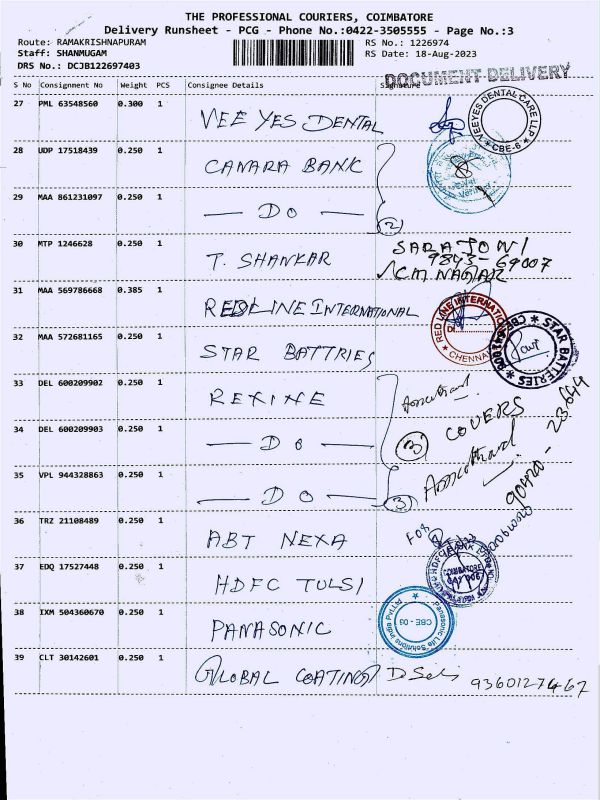 THE PROFESSIONAL COURIERS, COIMBATORE
Delivery Runsheet - PCG - Phone No.:0422-3505555 - Page No.:3
Route: RAMAKRISHNAPURAM RS No.: 1226974
Staff: SHANMUGAM RS Date: 18-Aug-2023
DRS No.: DCJB122697403
DOCUMENT DELIVERY
S No Consignment No Weight PCS Consignee Details Signature
27 PML 63548560 0.300 1 VEE YES DENTAL
VEEYES DENTAL CARE LLP * CBE-6 *
28 UDP 17518439 0.250 1 CANARA BANK
29 MAA 861231097 0.250 1 — DO — 2
30 MTP 1246628 0.250 1 T. SHANKAR
SARATONI
9843-69007
CM NAGAR
31 MAA 569786668 0.385 1 REDLINE INTERNATIONAL
RED LINE INTERNATIONAL * CHENNAI
32 MAA 572681165 0.250 1 STAR BATTRIES
* STAR BATTERIES *
33 DEL 600209902 0.250 1 REXINE
34 DEL 600209903 0.250 1 — DO — 3 COVERS
35 VPL 944328863 0.250 1 — DO — 3
36 TRZ 21108489 0.250 1 ABT NEXA
37 EDQ 17527448 0.250 1 HDFC TULSI
HDFC BANK LTD COIMBATORE
38 IXM 504360670 0.250 1 PANASONIC
Panasonic Life Solutions India Pvt.Ltd CBE - 03
39 CLT 30142601 0.250 1 GLOBAL COATING 9360127467